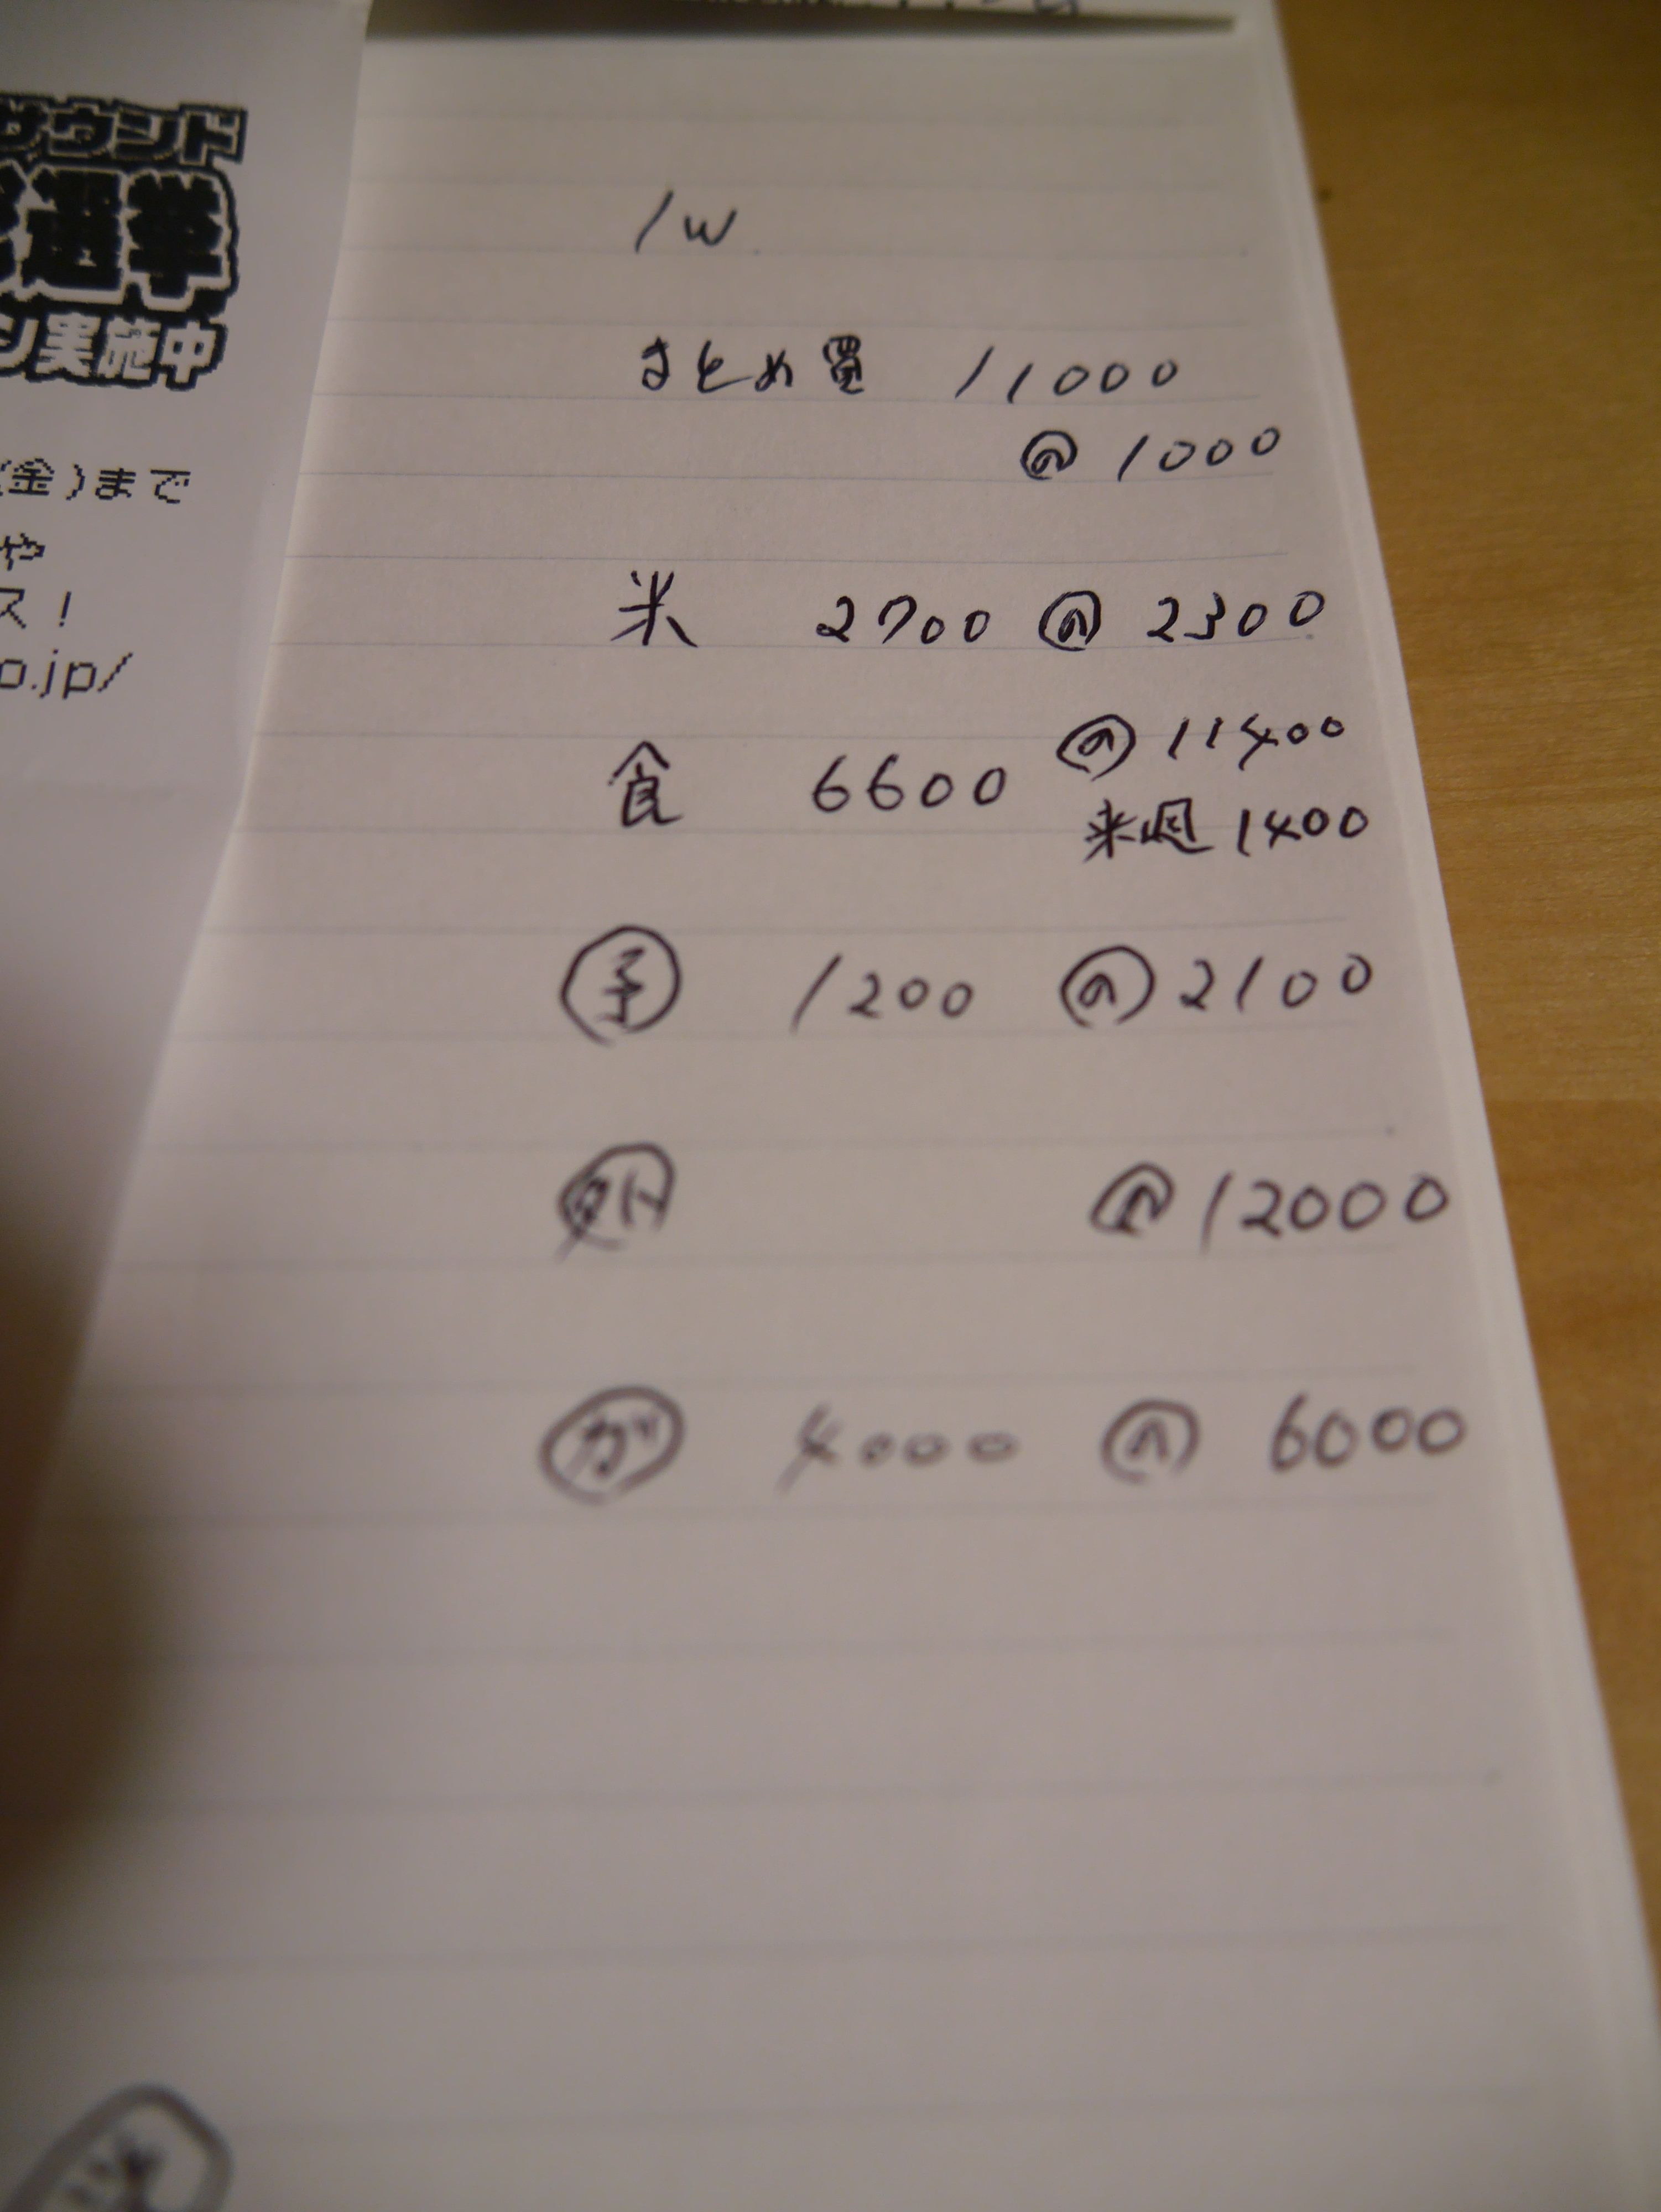 サウンド
選挙
ン実施中
(金)まで
や
ス!
o.jp/
1w
まとめ買 11000
の 1000
米 2700 の 2300
食 6600 の 11400
来週 1400
予 1200 の 2100
外 の 12000
ガ 4000 の 6000